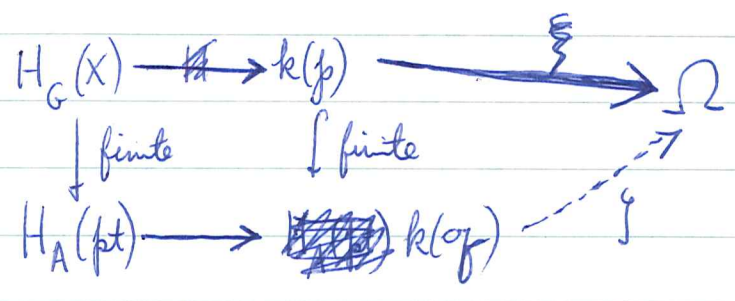 ξ
H_G(X) → k(𝔭) → Ω
↓ finite ∫ finite
H_A(pt) → k(𝔮) ζ